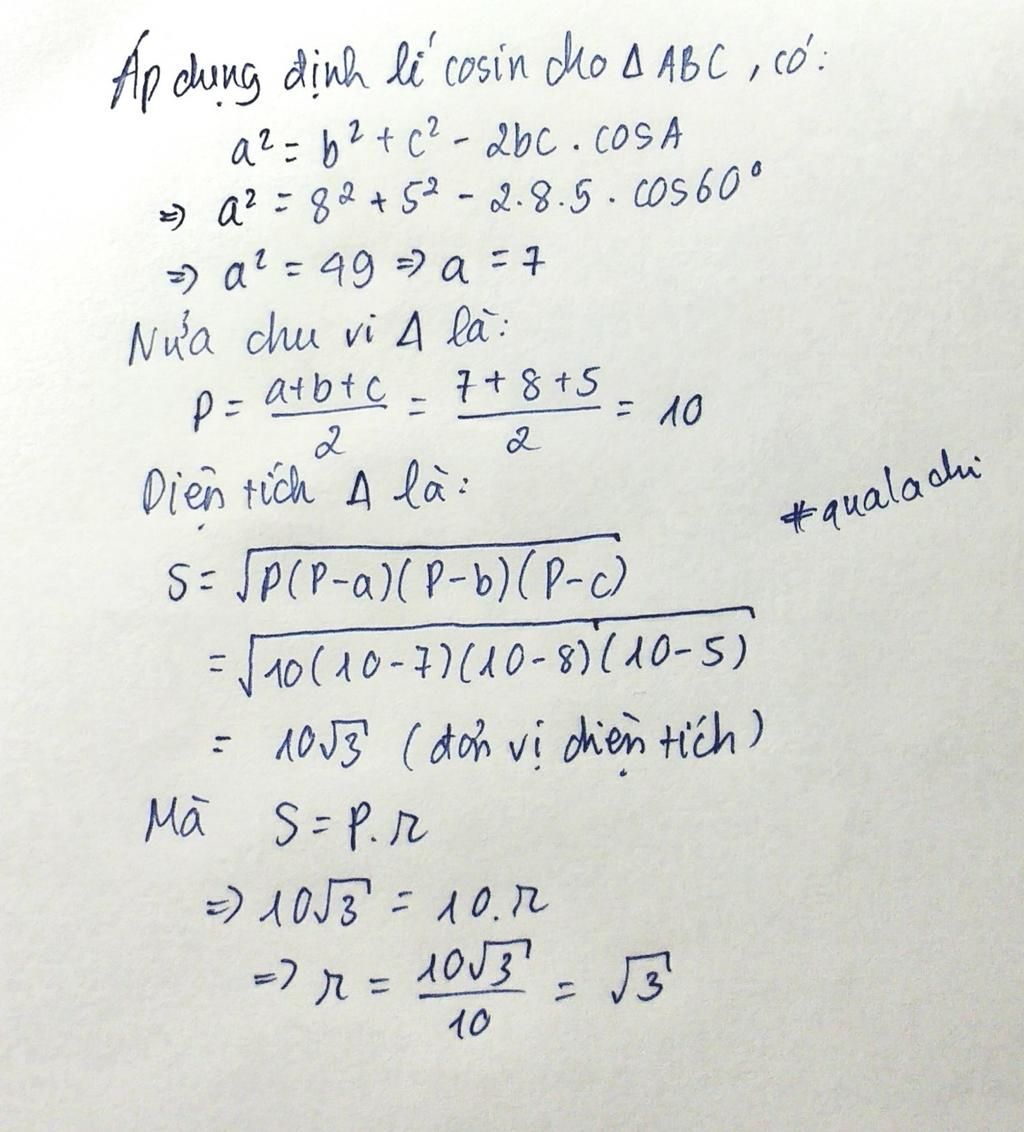 Áp dụng định lí cosin cho Δ ABC, có:
a² = b² + c² - 2bc . cosA
⇒ a² = 8² + 5² - 2.8.5 . cos60°
⇒ a² = 49 ⇒ a = 7
Nửa chu vi Δ là:
P = \frac{a+b+c}{2} = \frac{7+8+5}{2} = 10
Diện tích Δ là:
#qualachi
S = \sqrt{P(P-a)(P-b)(P-c)}
= \sqrt{10(10-7)(10-8)(10-5)}
= 10√3 (đơn vị diện tích)
Mà S = P.r
⇒ 10√3 = 10.r
⇒ r = \frac{10√3}{10} = √3